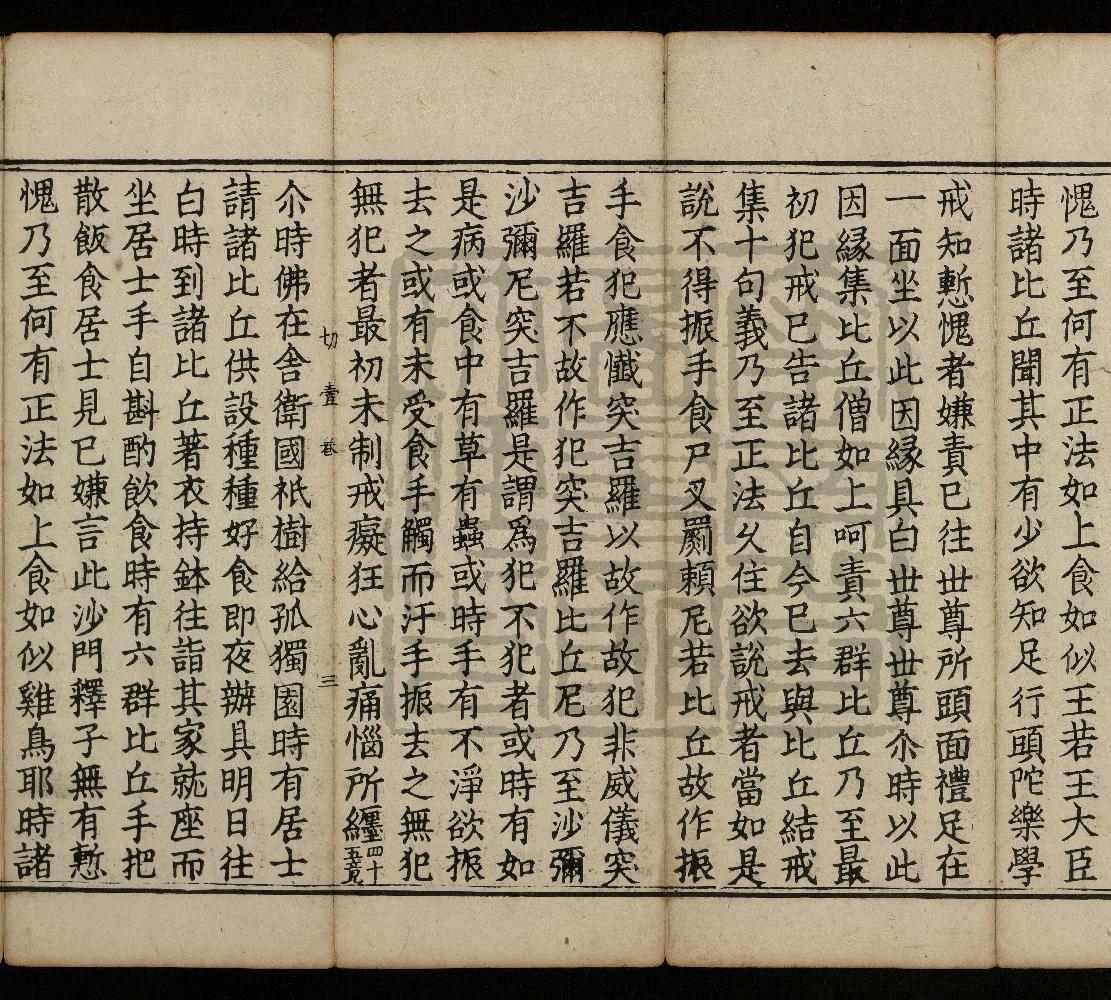 愧乃至何有正法如上食如似王若王大臣
時諸比丘聞其中有少欲知足行頭陀樂學
戒知慙愧者嫌責已往世尊所頭面禮足在
一面坐以此因緣具白世尊世尊尒時以此
因緣集比丘僧如上呵責六群比丘乃至最
初犯戒已告諸比丘自今已去與比丘結戒
集十句義乃至正法久住欲說戒者當如是
說不得振手食尸叉罽賴尼若比丘故作振
手食犯應懺突吉羅以故作故犯非威儀突
吉羅若不故作犯突吉羅比丘尼乃至沙彌
沙彌尼突吉羅是謂爲犯不犯者或時有如
是病或食中有草有蟲或時手有不淨欲振
去之或有未受食手觸而汙手振去之無犯
無犯者最初未制戒癡狂心亂痛惱所纏四十五竟
切 壹 卷 三
尒時佛在舍衛國祇樹給孤獨園時有居士
請諸比丘供設種種好食即夜辦具明日往
白時到諸比丘著衣持鉢往詣其家就座而
坐居士手自斟酌飲食時有六群比丘手把
散飯食居士見已嫌言此沙門釋子無有慙
愧乃至何有正法如上食如似雞鳥耶時諸